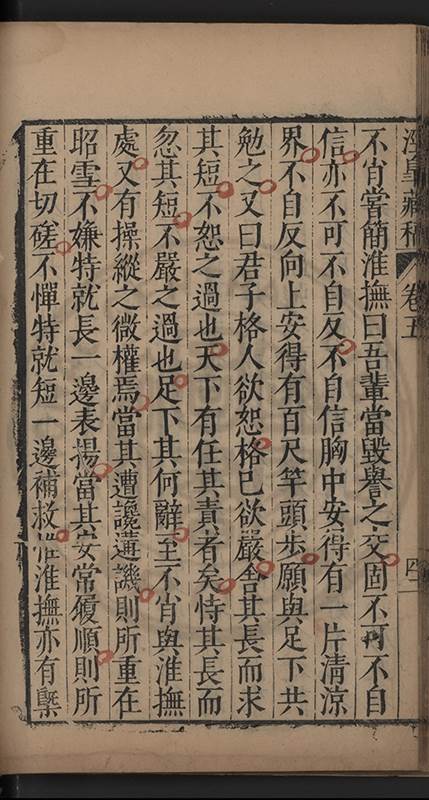 涇皋藏稿 卷五 四
不肖嘗簡淮撫曰吾輩當毀譽之交固不可不自
信亦不可不自反不自信胸中安得有一片清涼
界不自反向上安得有百尺竿頭步願與足下共
勉之又曰君子格人欲恕格已欲嚴舍其長而求
其短不恕之過也天下有任其責者矣恃其長而
忽其短不嚴之過也足下其何辭至不肖與淮撫
處又有操縱之微權焉當其遭讒遘譏則所重在
昭雪不嫌特就長一邊表揚當其安常履順則所
重在切磋不憚特就短一邊補救惟淮撫亦有槩